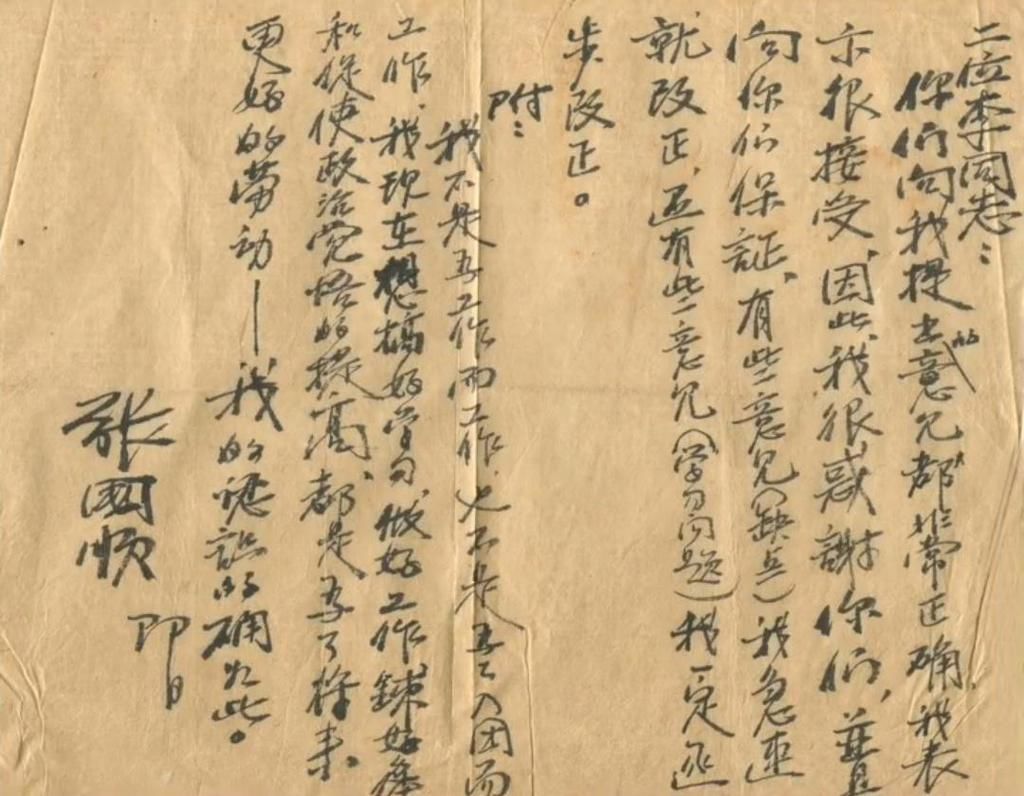 二位李同志：
你们向我提出的意见都非常正确，我表
示很接受，因此，我很感谢你们，并且
向你们保证，有些意见（缺点）我急速
就改正，还有些意见（学习问题）我一定逐
步改正。
附：
我不是为工作而工作，也不是为了入团而
工作，我现在想搞好学习做好工作鍊好身
和促使政治觉悟的提高，都是为了将来
更好的劳动——我的认识的确如此。
张國顺
即日